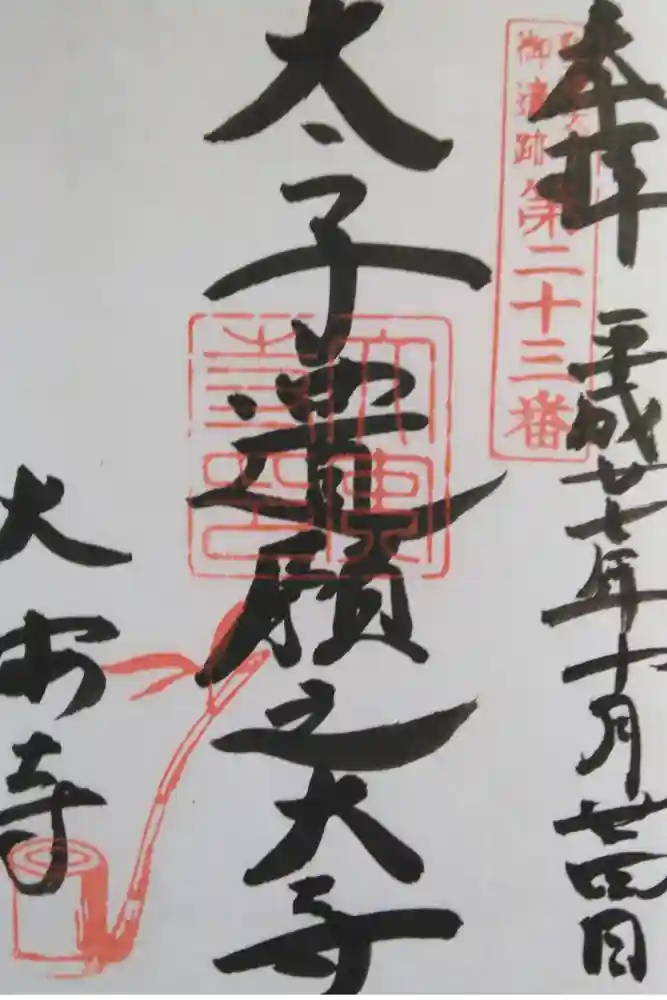 奉拝
平成廿七年十月廿四日
御遺跡第二十三番
太子遺願之大寺
大安寺